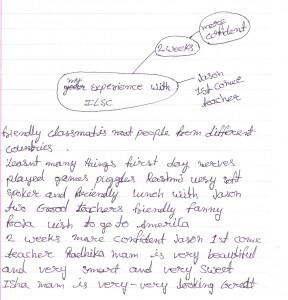 more confident
2 weeks
my experience with
ILSC
Jason
1st come
teacher
friendly classmatis meat people form different
countries.
Learnt many things first day nerves
played games puggles Reshma very soft
spoken and friendly lunch with Jason
two Good teachers friendly fanny
Pooja wish to go to Amerila
2 weeks more confident Jason 1st come
teacher Radhika mam is very beautiful
and very smart and very sweet
Isha mam is very-very looking Great